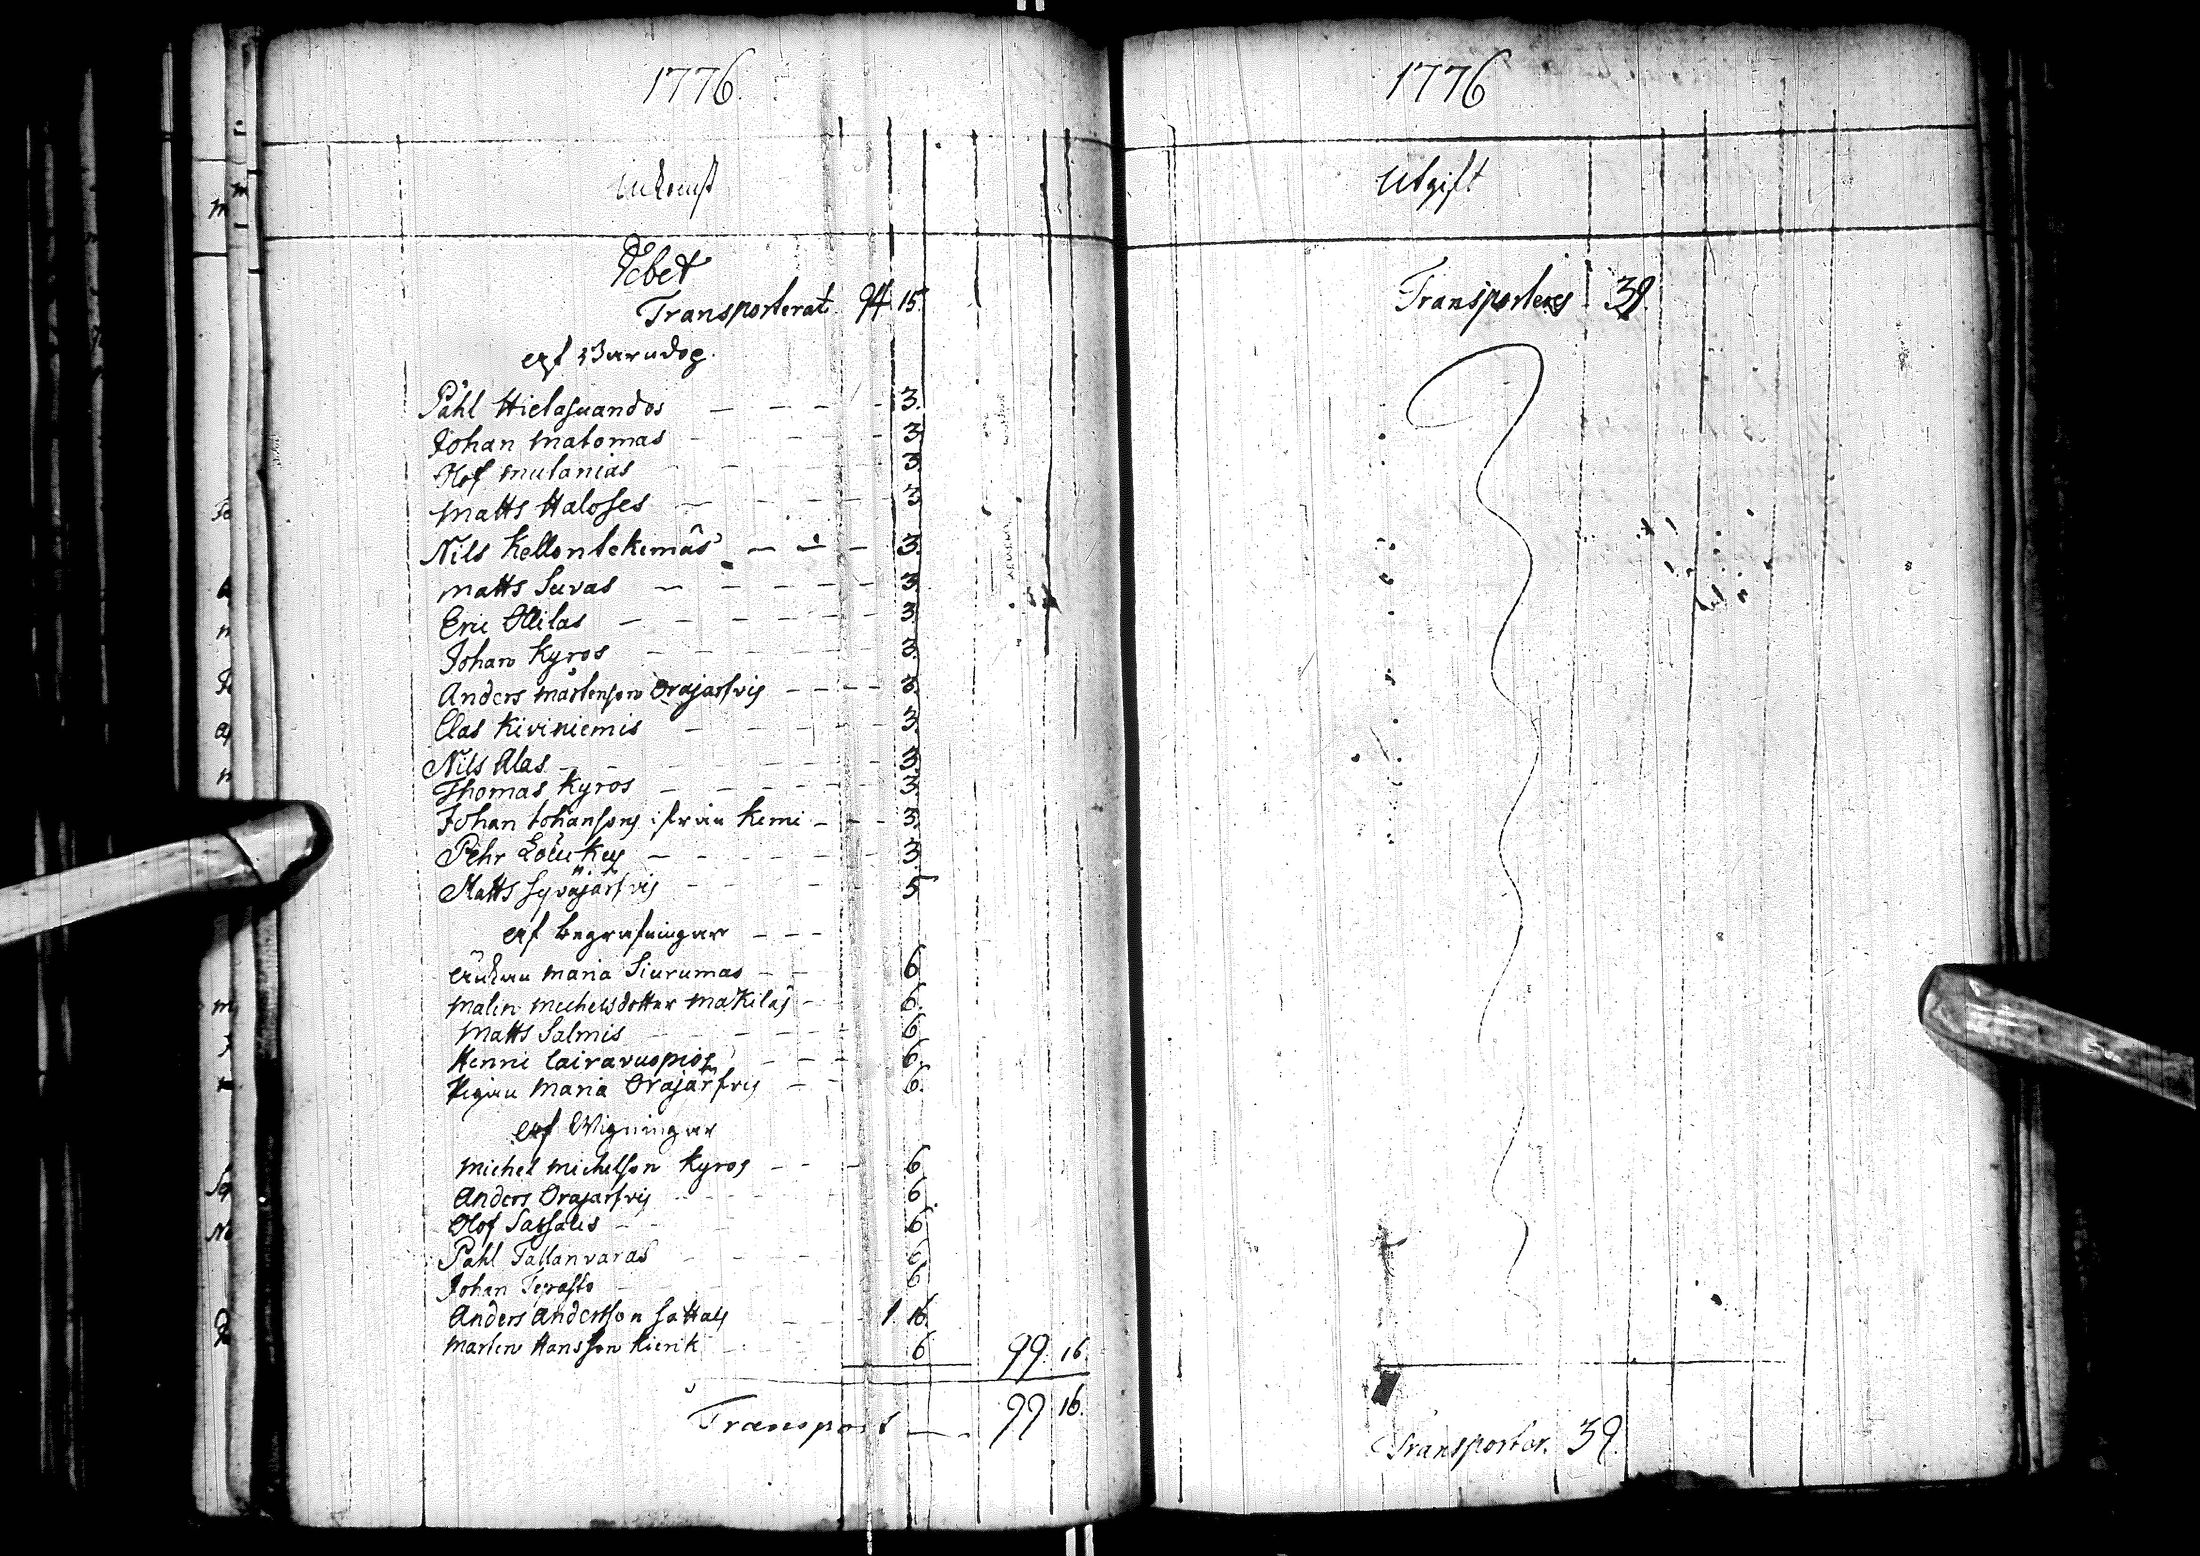 1776.
Inkomst
Debet
Transporterat 94 15
af Barndop.
Påhl Hietasuandos — — — — 3.
Johan Matomas — — — — 3
Olof Mulanias — — — 3.
Matts Haloses — — — — 3
Nils Kellontekemäs — — — 3.
Matts Suvas — — — — 3.
Eric Ollilas — — — — 3.
Johan Kyros — — — — 3.
Anders Mårtenson Orajarfvis — — — — 3.
Clas Kiviniemis — — — 3.
Nils Alas — — — — 3.
Thomas Kyros — — — — 3.
Johan Johansons ifrån Kemi — — — 3.
Pehr — — — — 3
Matts Syväjärfvis — — — 5
af Begrafningar — — —
Änkan Maria Siurumas — — 6
Malin Michelsdotter Mäkilas — 6.
Matts Salmis — — — 6.
Henric Lairavuopios — — — 6.
Pigan Maria Orajärfvis — — 6.
af Wigningar
Michel Michelson Kyros — — — 6
Anders Orajarfvis — — — 6
Olof — — — 6
Påhl Tallanvaras — — — 6
Johan — 6
Anders Andersson Sattas — — 1. 16.
Marten Hansson Kierik — — 6 99. 16.
Transport — — 99 16.
1776
Utgift
39.
39.